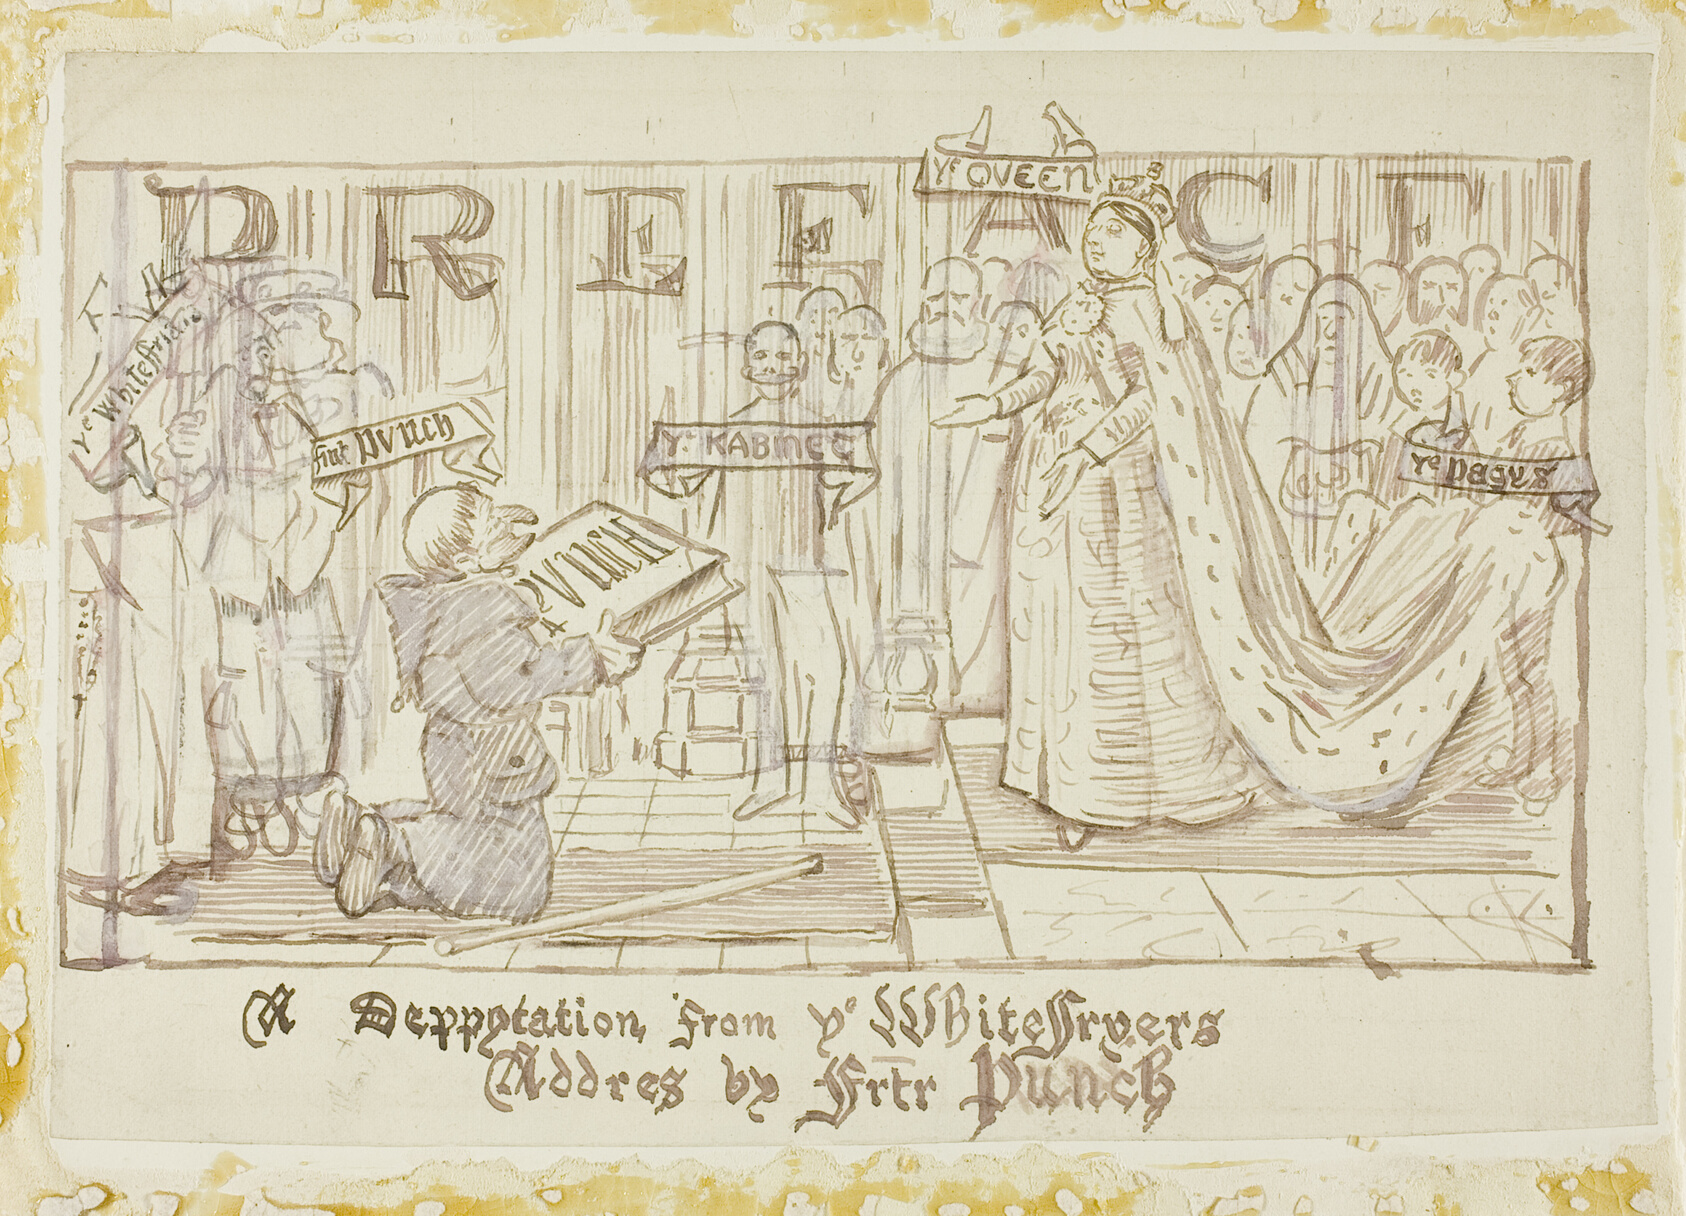 PREFACE
Yᵉ QVEEN
Yᵉ Whiteffriars
frat PVNCH
Yᵉ KABINEG
Yᵉ Pagys
PVNCH
A Deppytation from yᵉ Whiteffryers
Addres by Frtr Punch